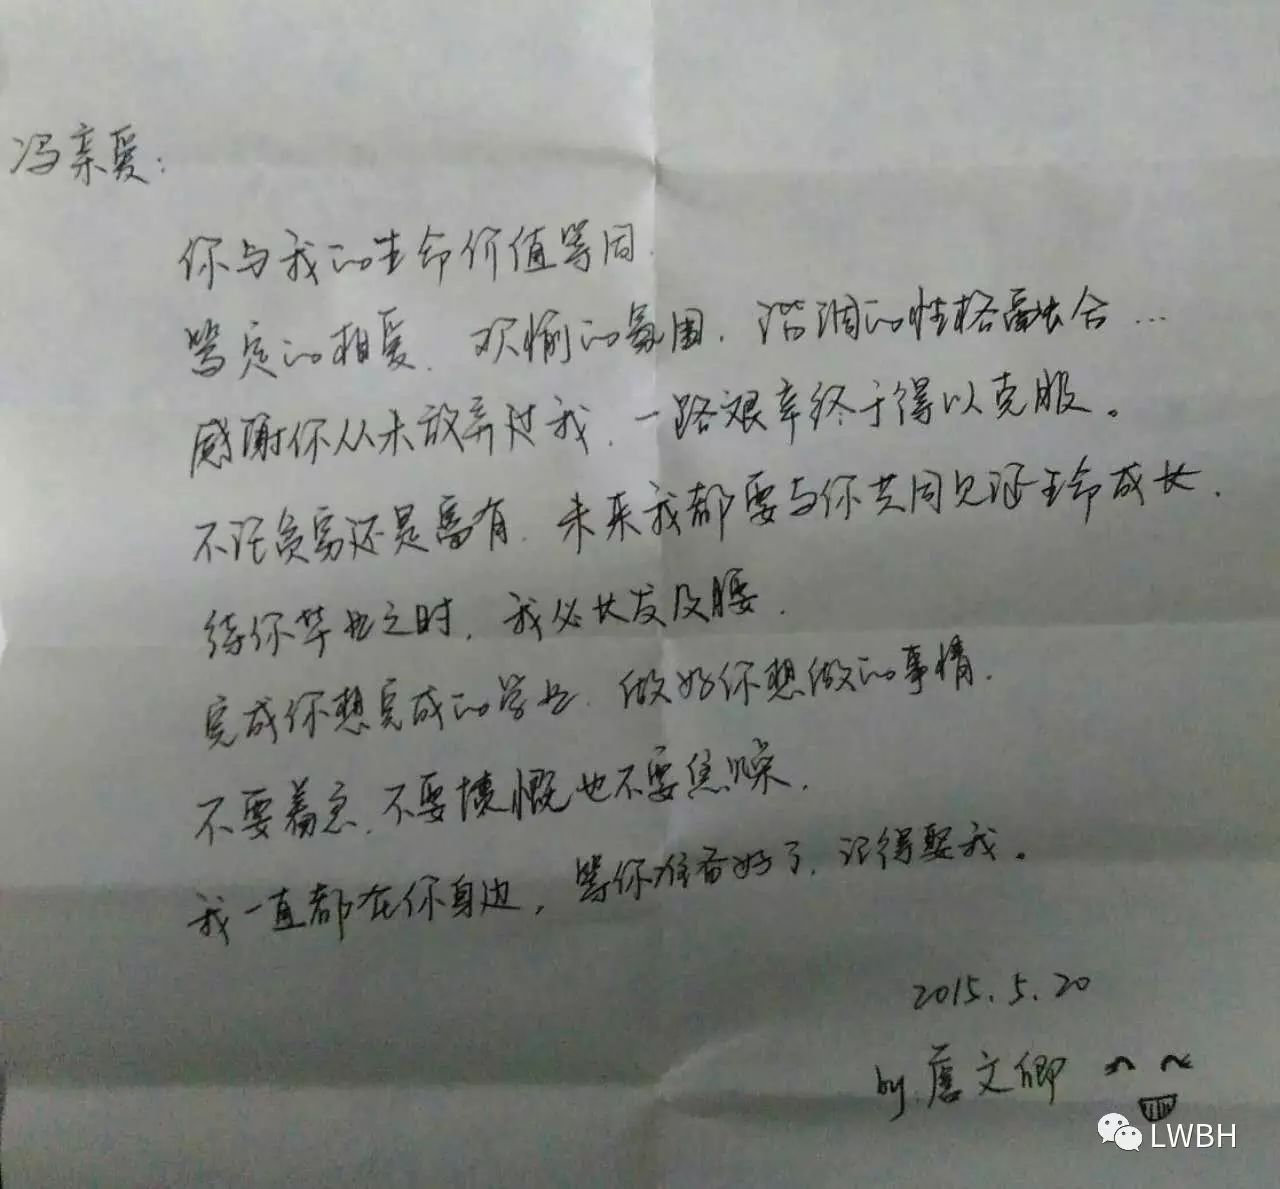 冯亲爱:
你与我的生命价值等同.
笃定的相爱.欢愉的氛围.谐调的性格融合...
感谢你从未放弃过我.一路艰辛终于得以克服。
不论贫穷还是富有.未来我都要与你共同见证生命成长.
待你毕业之时,我必长发及腰.
完成你想完成的学业.做好你想做的事情.
不要着急.不要愤慨也不要焦躁.
我一直都在你身边,等你准备好了,记得娶我。
2015.5.20
by.文卿
LWBH